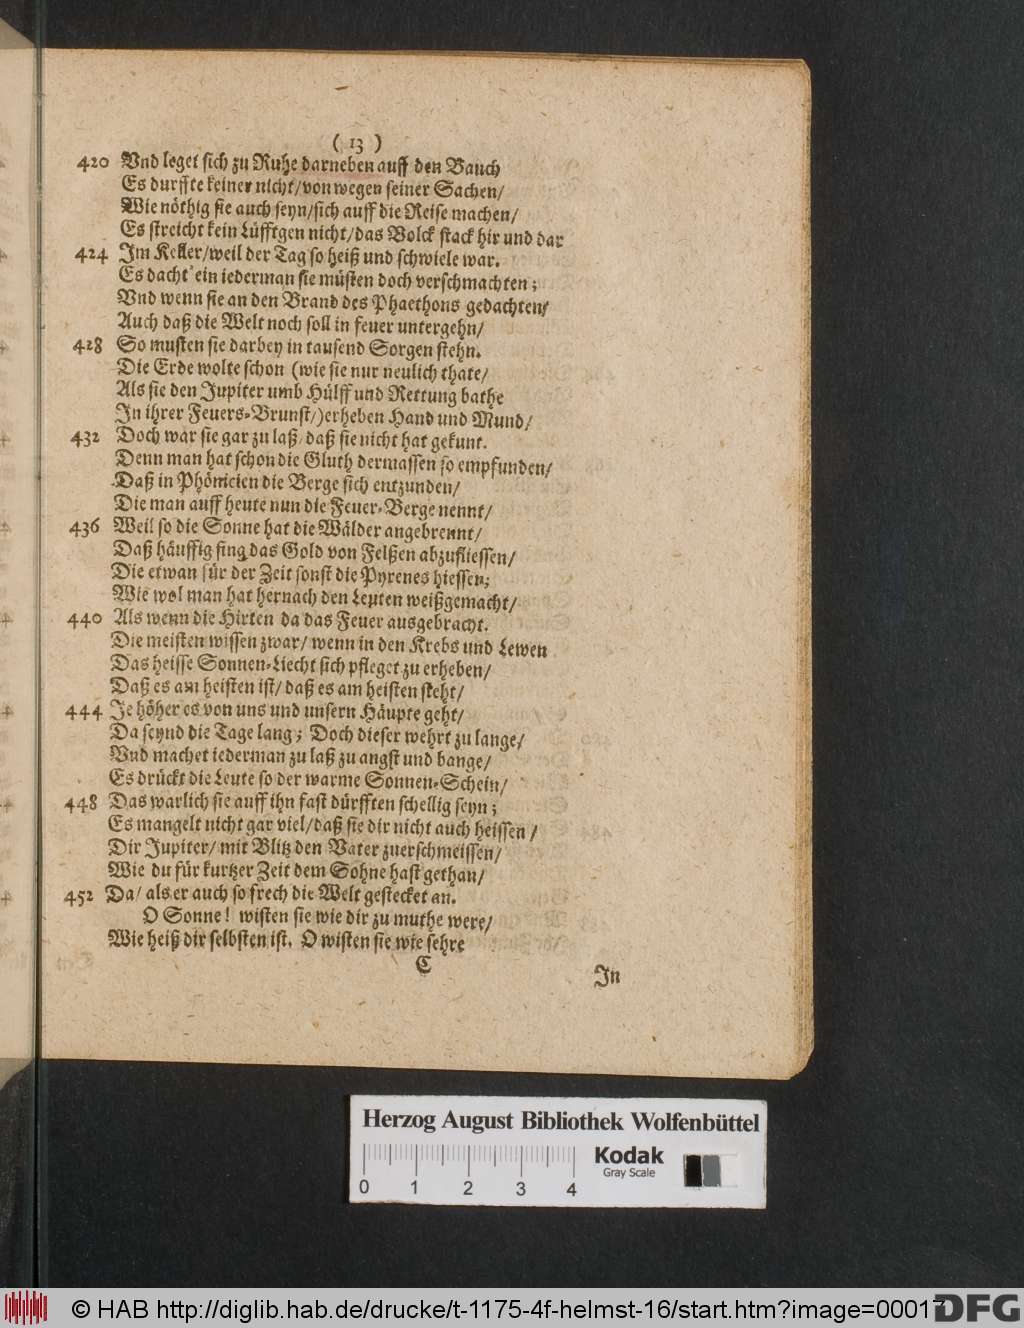 ( 13 )
420 Vnd leget sich zu Ruhe darneben auff den Bauch
Es durffte keiner nicht/ von wegen seiner Sachen/
Wie nöthig sie auch seyn/ sich auff die Reise machen/
Es streicht kein Lüfftgen nicht/ das Volck stack hir und dar
424 Im Keller/ weil der Tag so heiß und schwiele war.
Es dacht' ein iederman sie müsten doch verschmachten;
Vnd wenn sie an den Brand des Phaethons gedachten/
Auch daß die Welt noch soll in feuer untergehn/
428 So musten sie darbey in tausend Sorgen stehn.
Die Erde wolte schon (wie sie nur neulich thate/
Als sie den Jupiter umb Hülff und Rettung bathe
In ihrer Feuers-Brunst/) erheben Hand und Mund/
432 Doch war sie gar zu laß/ daß sie nicht hat gekunt.
Denn man hat schon die Gluth dermassen so empfunden/
Daß in Phönicien die Berge sich entzunden/
Die man auff heute nun die Feuer-Berge nennt/
436 Weil so die Sonne hat die Wälder angebrennt/
Daß häuffig fing das Gold von Felßen abzufliessen/
Die etwan für der Zeit sonst die Pyrenes hiessen;
Wie wol man hat hernach den Leuten weißgemacht/
440 Als wenn die Hirten da das Feuer ausgebracht.
Die meisten wissen zwar/ wenn in den Krebs und Lewen
Das heisse Sonnen-Liecht sich pfleget zu erheben/
Daß es am heisten ist/ daß es am heisten steht/
444 Je höher es von uns und unsern Häupte geht/
Da seynd die Tage lang; Doch dieser wehrt zu lange/
Vnd machet iederman zu laß zu angst und bange/
Es drückt die Leute so der warme Sonnen-Schein/
448 Das warlich sie auff ihn fast dürfften schellig seyn;
Es mangelt nicht gar viel/ daß sie dir nicht auch heissen/
Dir Jupiter/ mit Blitz den Vater zuerschmeissen/
Wie du für kurtzer Zeit dem Sohne hast gethan/
452 Da/ als er auch so frech die Welt gestecket an.
O Sonne! wisten sie wie dir zu muthe were/
Wie heiß dir selbsten ist. O wisten sie wie sehre
C In
Herzog August Bibliothek Wolfenbüttel
Kodak
Gray Scale
0 1 2 3 4
© HAB http://diglib.hab.de/drucke/t-1175-4f-helmst-16/start.htm?image=00017
DFG